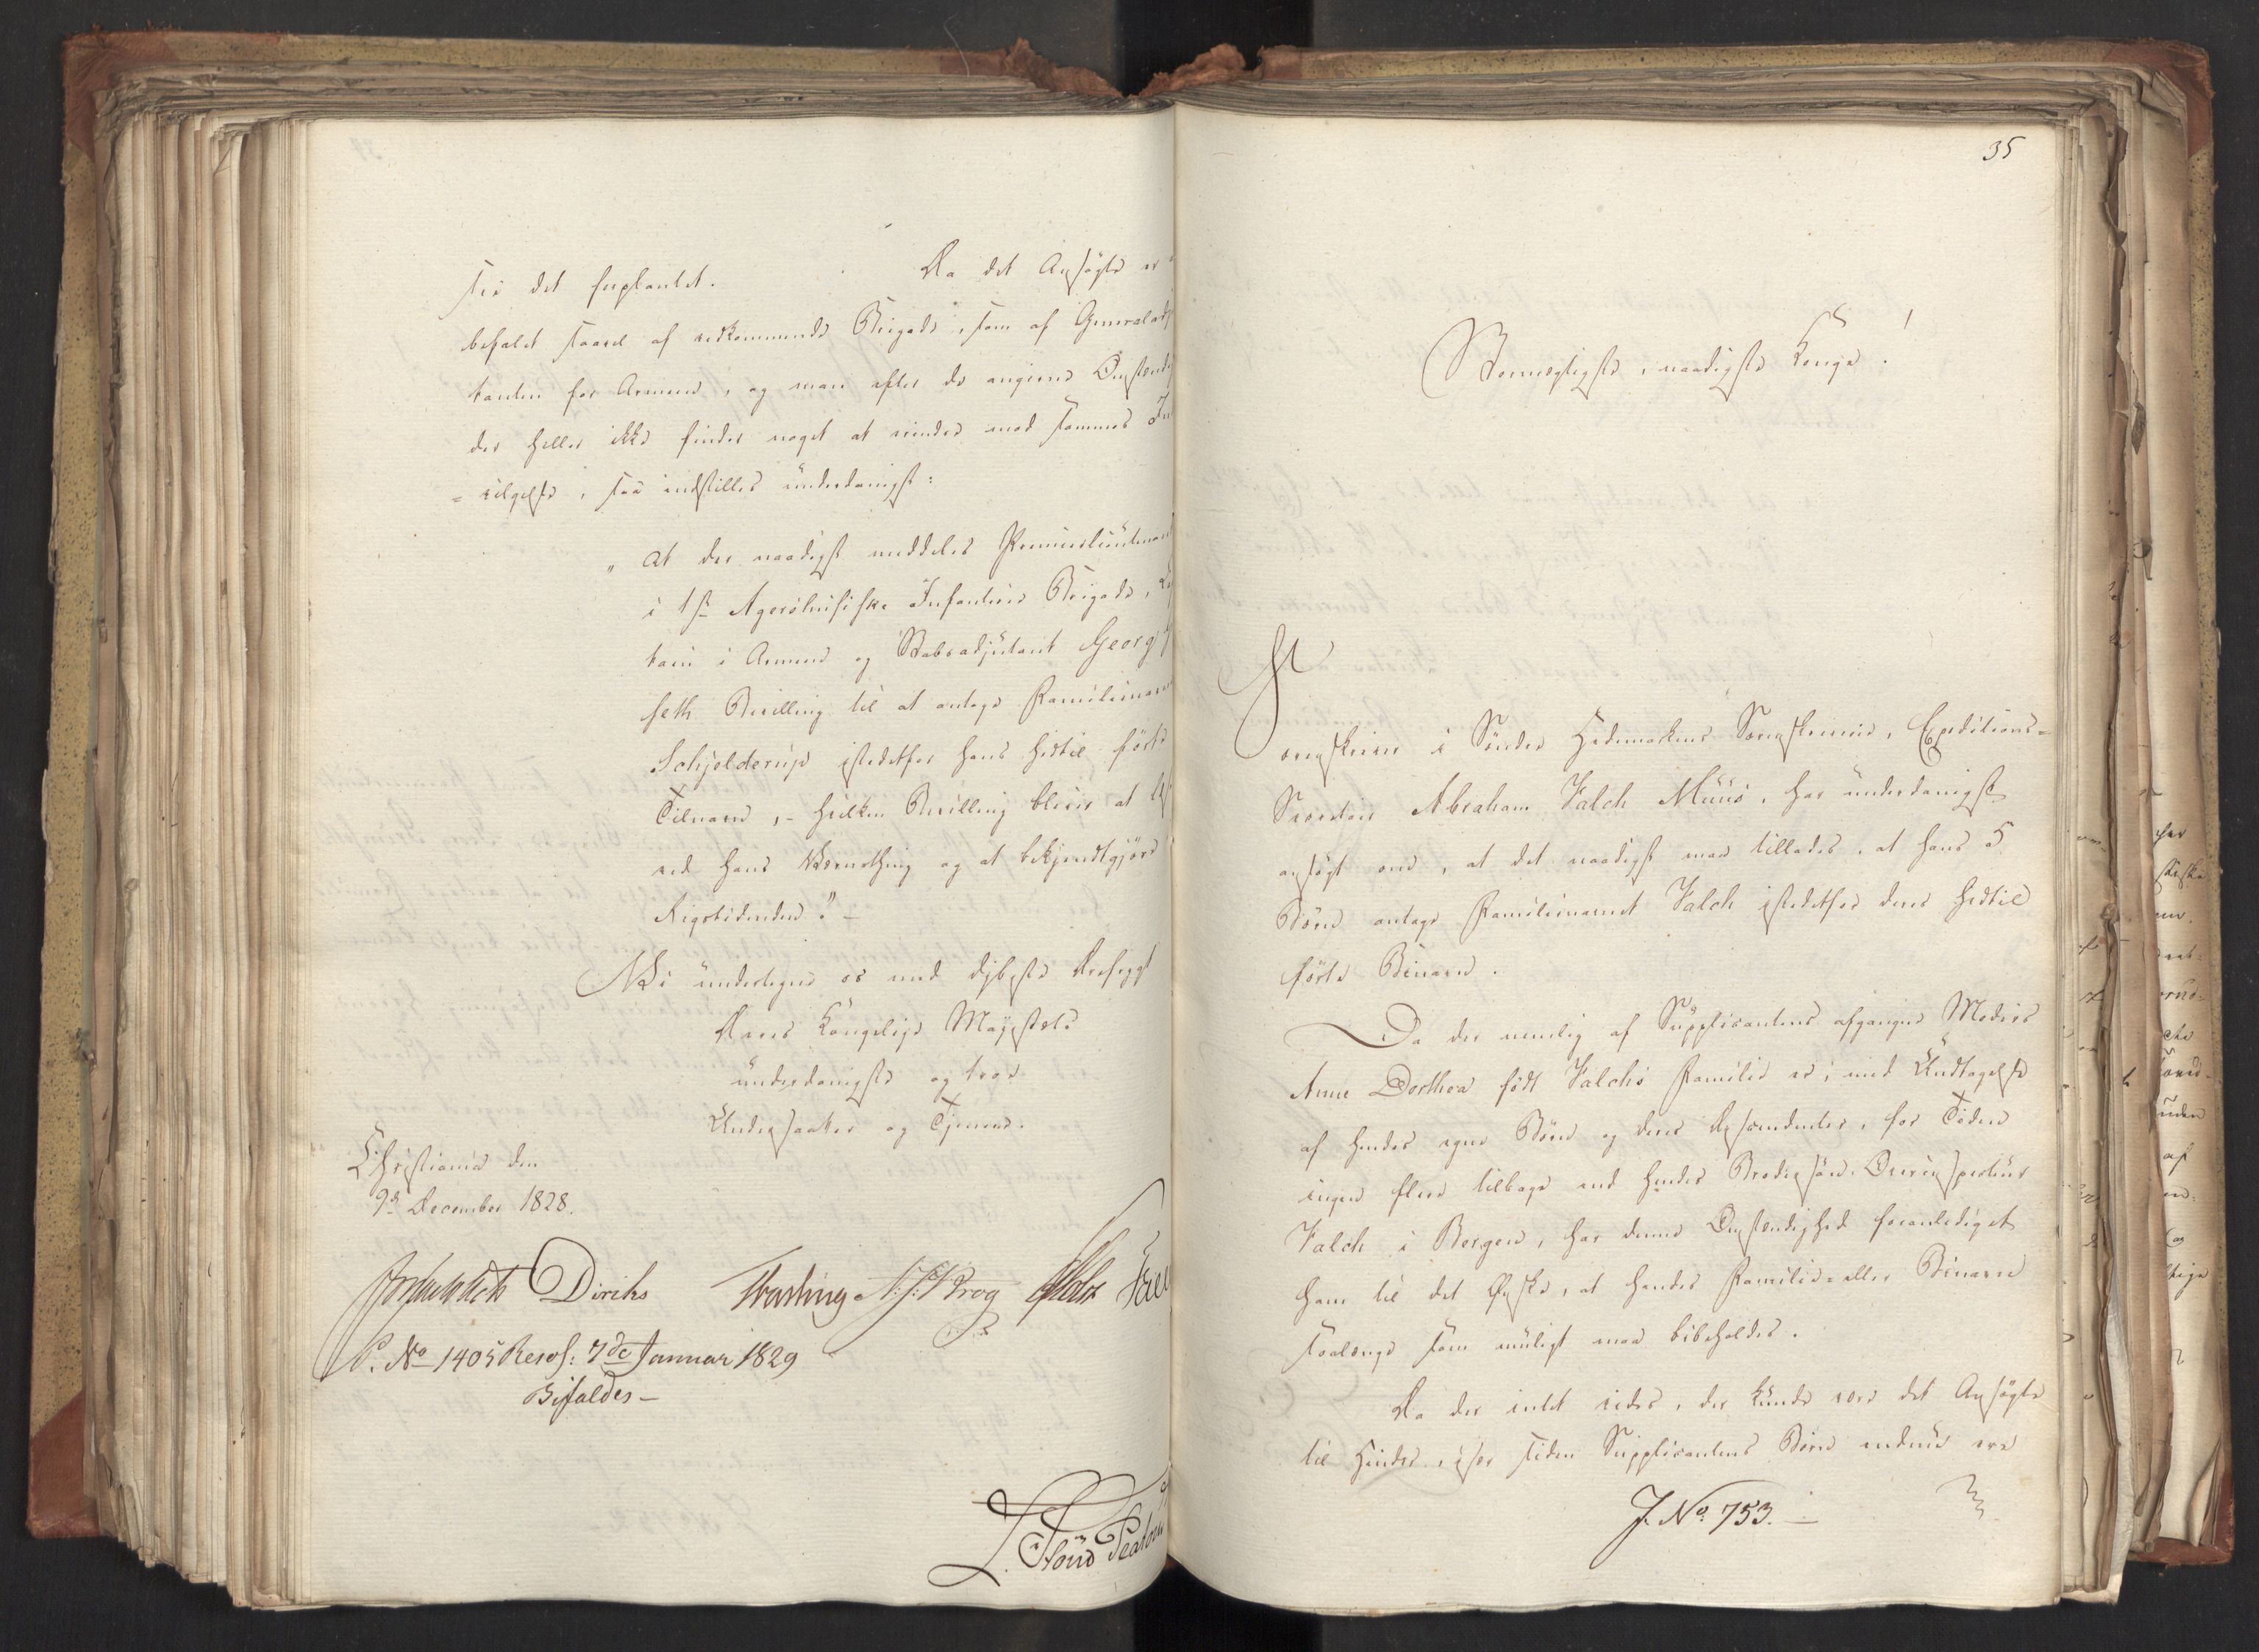 sin det forplantet. Da det Ansøgte er
befalet saavel af vedkommende Brigade, som af Generaladj
tanten for Armeen, og man efter de angivne Omstændig
der heller ikke finder noget at erindre mod sammes Ind
= vilgelse, saa indstilles underdanigst:
„ at der naadigst meddeles Premierlieutenant
i 1ste Agershusiske Infanterie Brigade,
tain i Armeen og Stabsadjutant Georg
seth Bevilling til at antage Familienavnet
Schjelderup istedetfor hans hidtil førte
Tilnavn, - hvilken Bevilling bliver at
ved hans Værnething og at bekjendtgjøre
Rigstidenden." -
Vi undertegne os med dybeste Ærefrygt
Deres Kongelige Majestæts
underdanigste og troe
Undersaatter og Tjenere.
Christiania den
9de December 1828.
Diriks Fasting Krog Holst
S. No 1405 Resol: 7de Januar 1829
Bifaldes -
35
Stormægtigste, naadigste Konge!
Sorenskriver i Søndre Hedemarkens Sorenskriverie, Expeditions=
Secretair Abraham Falch Muus, har underdanigst
ansøgt om, at det naadigst maa tillades, at hans 5
Børn antage Familienavnet Falch istedetfor deres hidtil
førte Binavn.
Da der nemlig af Supplicantens afgangne Moders
Anne Dorthea født Falchs Familie er, med Undtagelse
af hendes egne Børn og deres Descendenter, for Tiden
ingen flere tilbage end hendes Brodersøn Overinspecteur
Falch i Bergen, har denne Omstændighed foranlediget
ham til det Ønske, at hendes Familie- eller Binavn
saalænge som muligt maa bibeholdes.
Da der intet vides, der kunde være det Ansøgte
til Hinder, især siden Supplicantens Børn endnu ere
J. No. 753. -